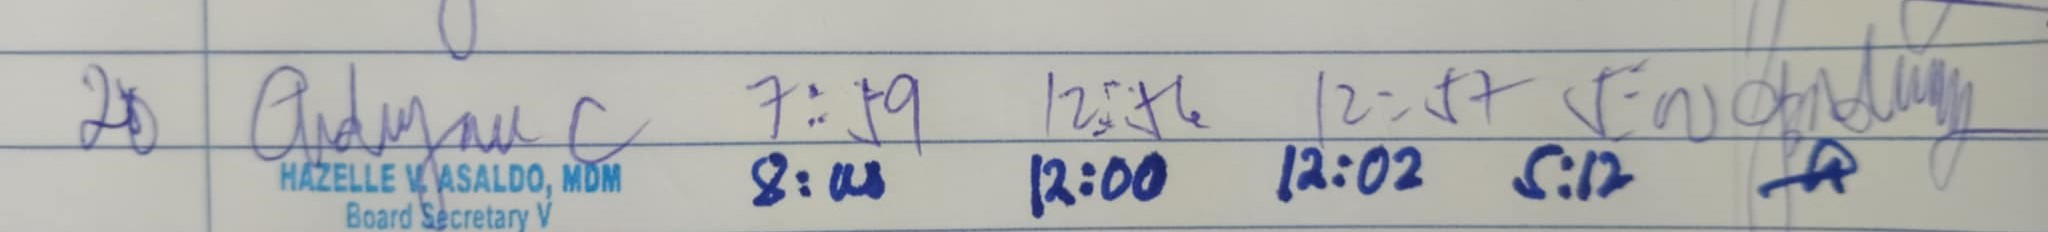 20 C 7:59 12:56 12:57
HAZELLE V. ASALDO, MDM 8:00 12:00 12:02 5:12
Board Secretary V